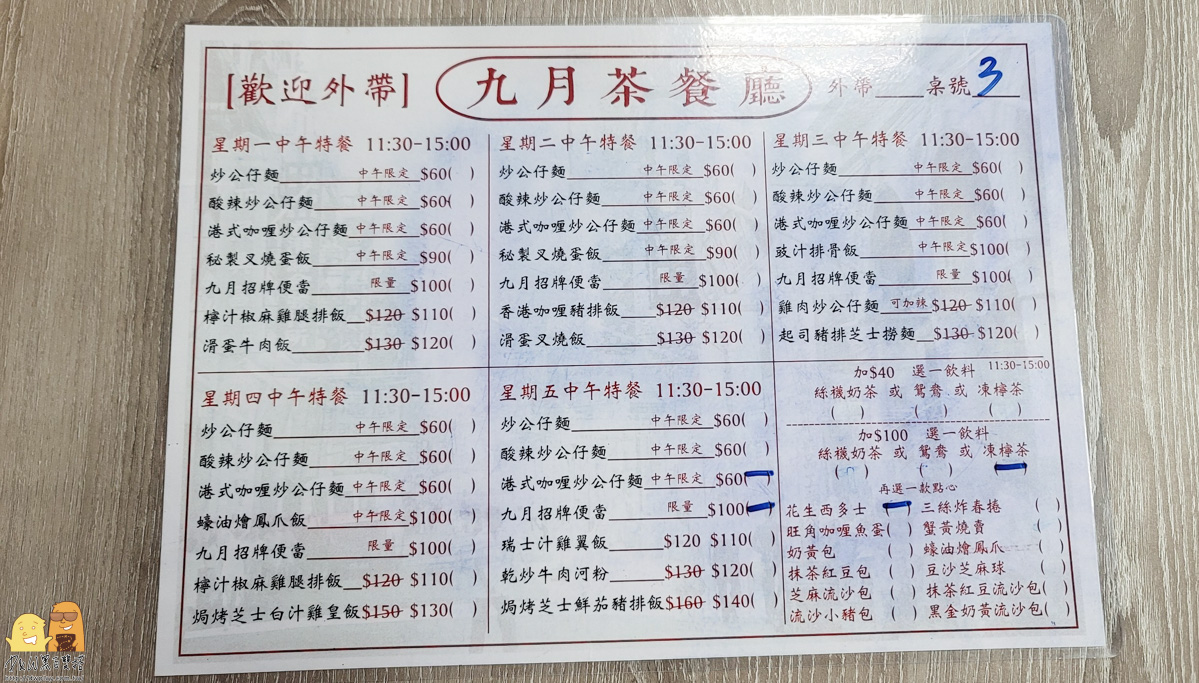 [歡迎外帶] 九月茶餐廳 外帶____桌號 3
星期一中午特餐 11:30-15:00
炒公仔麵 中午限定 $60( )
酸辣炒公仔麵 中午限定 $60( )
港式咖喱炒公仔麵 中午限定 $60( )
秘製叉燒蛋飯 中午限定 $90( )
九月招牌便當 限量 $100( )
檸汁椒麻雞腿排飯 $120 $110( )
滑蛋牛肉飯 $130 $120( )
星期二中午特餐 11:30-15:00
炒公仔麵 中午限定 $60( )
酸辣炒公仔麵 中午限定 $60( )
港式咖喱炒公仔麵 中午限定 $60( )
秘製叉燒蛋飯 中午限定 $90( )
九月招牌便當 限量 $100( )
香港咖喱豬排飯 $120 $110( )
滑蛋叉燒飯 $130 $120( )
星期三中午特餐 11:30-15:00
炒公仔麵 中午限定 $60( )
酸辣炒公仔麵 中午限定 $60( )
港式咖喱炒公仔麵 中午限定 $60( )
豉汁排骨飯 中午限定 $100( )
九月招牌便當 限量 $100( )
雞肉炒公仔麵 可加辣 $120 $110( )
起司豬排芝士撈麵 $130 $120( )
星期四中午特餐 11:30-15:00
炒公仔麵 中午限定 $60( )
酸辣炒公仔麵 中午限定 $60( )
港式咖喱炒公仔麵 中午限定 $60( )
蠔油燴鳳爪飯 中午限定 $100( )
九月招牌便當 限量 $100( )
檸汁椒麻雞腿排飯 $120 $110( )
焗烤芝士白汁雞皇飯 $150 $130( )
星期五中午特餐 11:30-15:00
炒公仔麵 中午限定 $60( )
酸辣炒公仔麵 中午限定 $60( )
港式咖喱炒公仔麵 中午限定 $60( )
九月招牌便當 限量 $100( )
瑞士汁雞翼飯 $120 $110( )
乾炒牛肉河粉 $130 $120( )
焗烤芝士鮮茄豬排飯 $160 $140( )
加$40 選一飲料 11:30-15:00
絲襪奶茶 或 鴛鴦 或 凍檸茶
( ) ( ) ( )
加$100 選一飲料
絲襪奶茶 或 鴛鴦 或 凍檸茶
( ) ( )
再選一款點心
花生西多士 三絲炸春捲 ( )
旺角咖喱魚蛋( ) 蟹黃燒賣 ( )
奶黃包 ( ) 蠔油燴鳳爪 ( )
抹茶紅豆包 ( ) 豆沙芝麻球 ( )
芝麻流沙包 ( ) 抹茶紅豆流沙包( )
流沙小豬包 ( ) 黑金奶黃流沙包( )